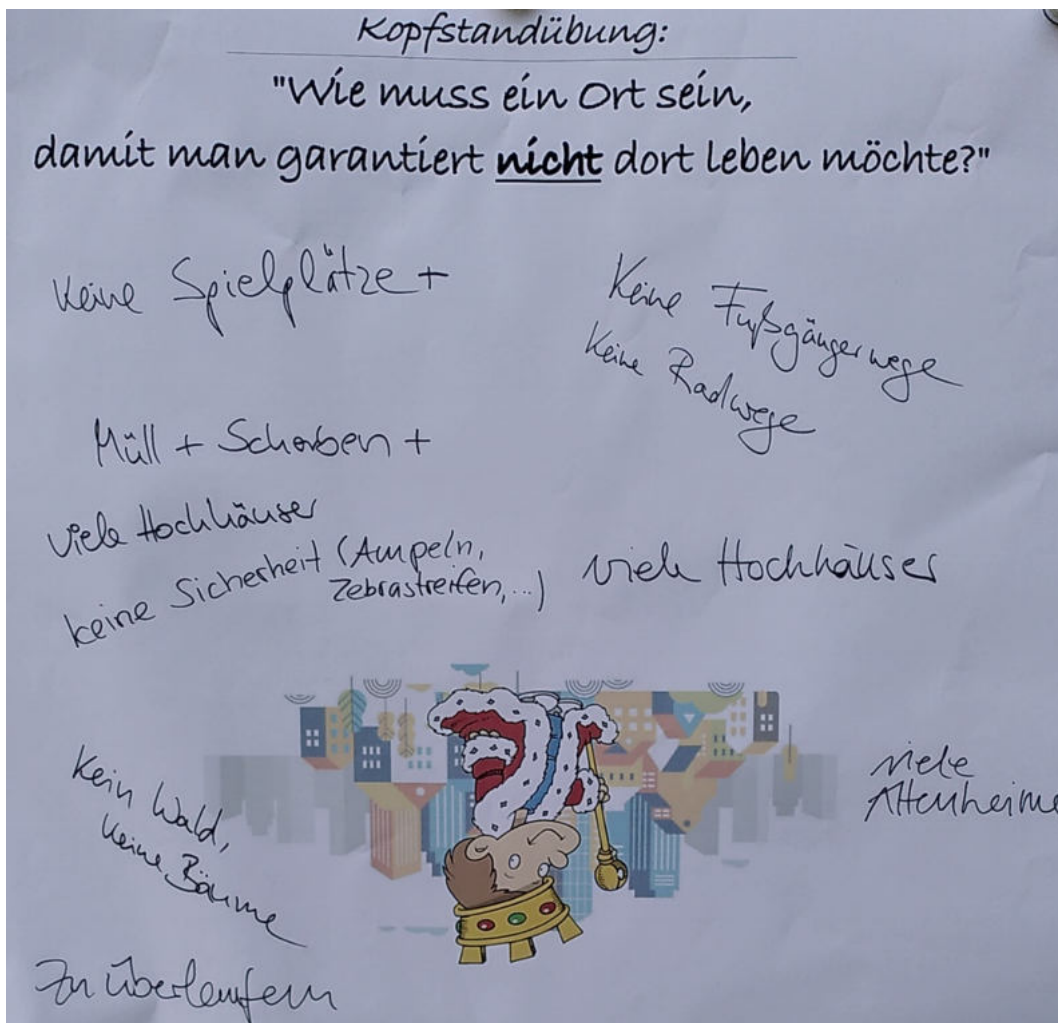 Kopfstandübung:
"Wie muss ein Ort sein,
damit man garantiert nicht dort leben möchte?"
Keine Spielplätze +
Keine Fußgängerwege
Keine Radwege
Müll + Scherben +
viele Hochhäuser
keine Sicherheit (Ampeln,
Zebrastreifen, ...)
viele Hochhäuser
Kein Wald,
keine Bäume
viele
Altenheime
Zu überlaufen